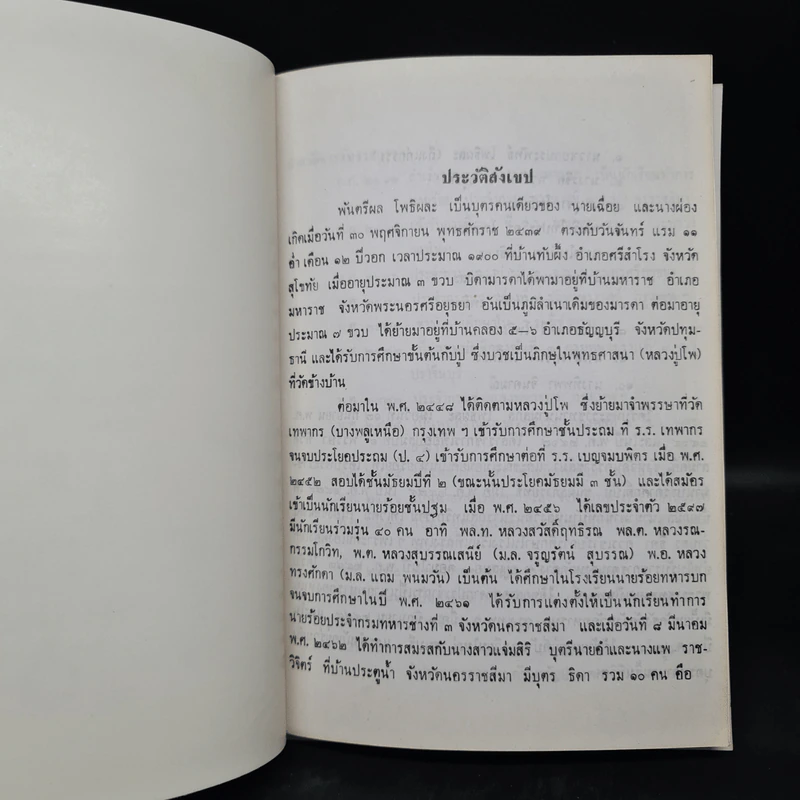 ประวัติสังเขป
พันตรีผล โพธิผละ เป็นบุตรคนเดียวของ นายเฉื่อย และนางผ่อง
เกิดเมื่อวันที่ ๓๐ พฤศจิกายน พุทธศักราช ๒๔๓๙ ตรงกับวันจันทร์ แรม ๑๑
ค่ำ เดือน ๑๒ ปีวอก เวลาประมาณ ๑๙๐๐ ที่บ้านทับผึ้ง อำเภอศรีสำโรง จังหวัด
สุโขทัย เมื่ออายุประมาณ ๓ ขวบ บิดามารดาได้พามาอยู่ที่บ้านมหาราช อำเภอ
มหาราช จังหวัดพระนครศรีอยุธยา อันเป็นภูมิลำเนาเดิมของมารดา ต่อมาอายุ
ประมาณ ๗ ขวบ ได้ย้ายมาอยู่ที่บ้านคลอง ๕–๖ อำเภอธัญญบุรี จังหวัดปทุม-
ธานี และได้รับการศึกษาขั้นต้นกับปู่ ซึ่งบวชเป็นภิกษุในพุทธศาสนา (หลวงปู่โพ)
ที่วัดข้างบ้าน
ต่อมาใน พ.ศ. ๒๔๔๘ ได้ติดตามหลวงปู่โพ ซึ่งย้ายมาจำพรรษาที่วัด
เทพากร (บางพลูเหนือ) กรุงเทพ ฯ เข้ารับการศึกษาชั้นประถม ที่ ร.ร. เทพากร
จนจบประโยคประถม (ป. ๔) เข้ารับการศึกษาต่อที่ ร.ร. เบญจมบพิตร เมื่อ พ.ศ.
๒๔๕๒ สอบได้ชั้นมัธยมปีที่ ๒ (ขณะนั้นประโยคมัธยมมี ๓ ชั้น) และได้สมัคร
เข้าเป็นนักเรียนนายร้อยชั้นปฐม เมื่อ พ.ศ. ๒๔๕๖ ได้เลขประจำตัว ๒๕๙๗
มีนักเรียนร่วมรุ่น ๔๐ คน อาทิ พล.ท. หลวงสวัสดิ์ฤทธิรณ พล.ต. หลวงรณ-
กรรมโกวิท, พ.ต. หลวงสุบรรณเสนีย์ (ม.ล. จรูญรัตน์ สุบรรณ) พ.อ. หลวง
ทรงศักดา (ม.ล. แถม พนมวัน) เป็นต้น ได้ศึกษาในโรงเรียนนายร้อยทหารบก
จนจบการศึกษาในปี พ.ศ. ๒๔๖๑ ได้รับการแต่งตั้งให้เป็นนักเรียนทำการ
นายร้อยประจำกรมทหารช่างที่ ๓ จังหวัดนครราชสีมา และเมื่อวันที่ ๘ มีนาคม
พ.ศ. ๒๔๖๒ ได้ทำการสมรสกับนางสาวแจ่มสิริ บุตรีนายคำและนางแพ ราช-
วิจิตร์ ที่บ้านประตูน้ำ จังหวัดนครราชสีมา มีบุตร ธิดา รวม ๑๐ คน คือ